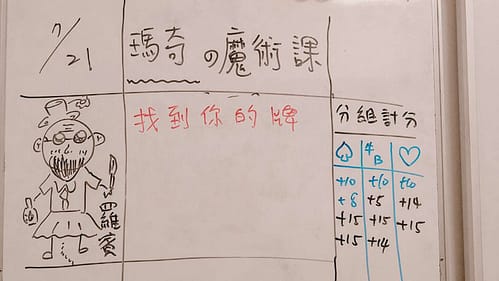 7/21
瑪奇の魔術課
找到你的牌
羅賓
分組計分
+10 +10 +10
+8 +5 +14
+15 +15 +15
+15 +14